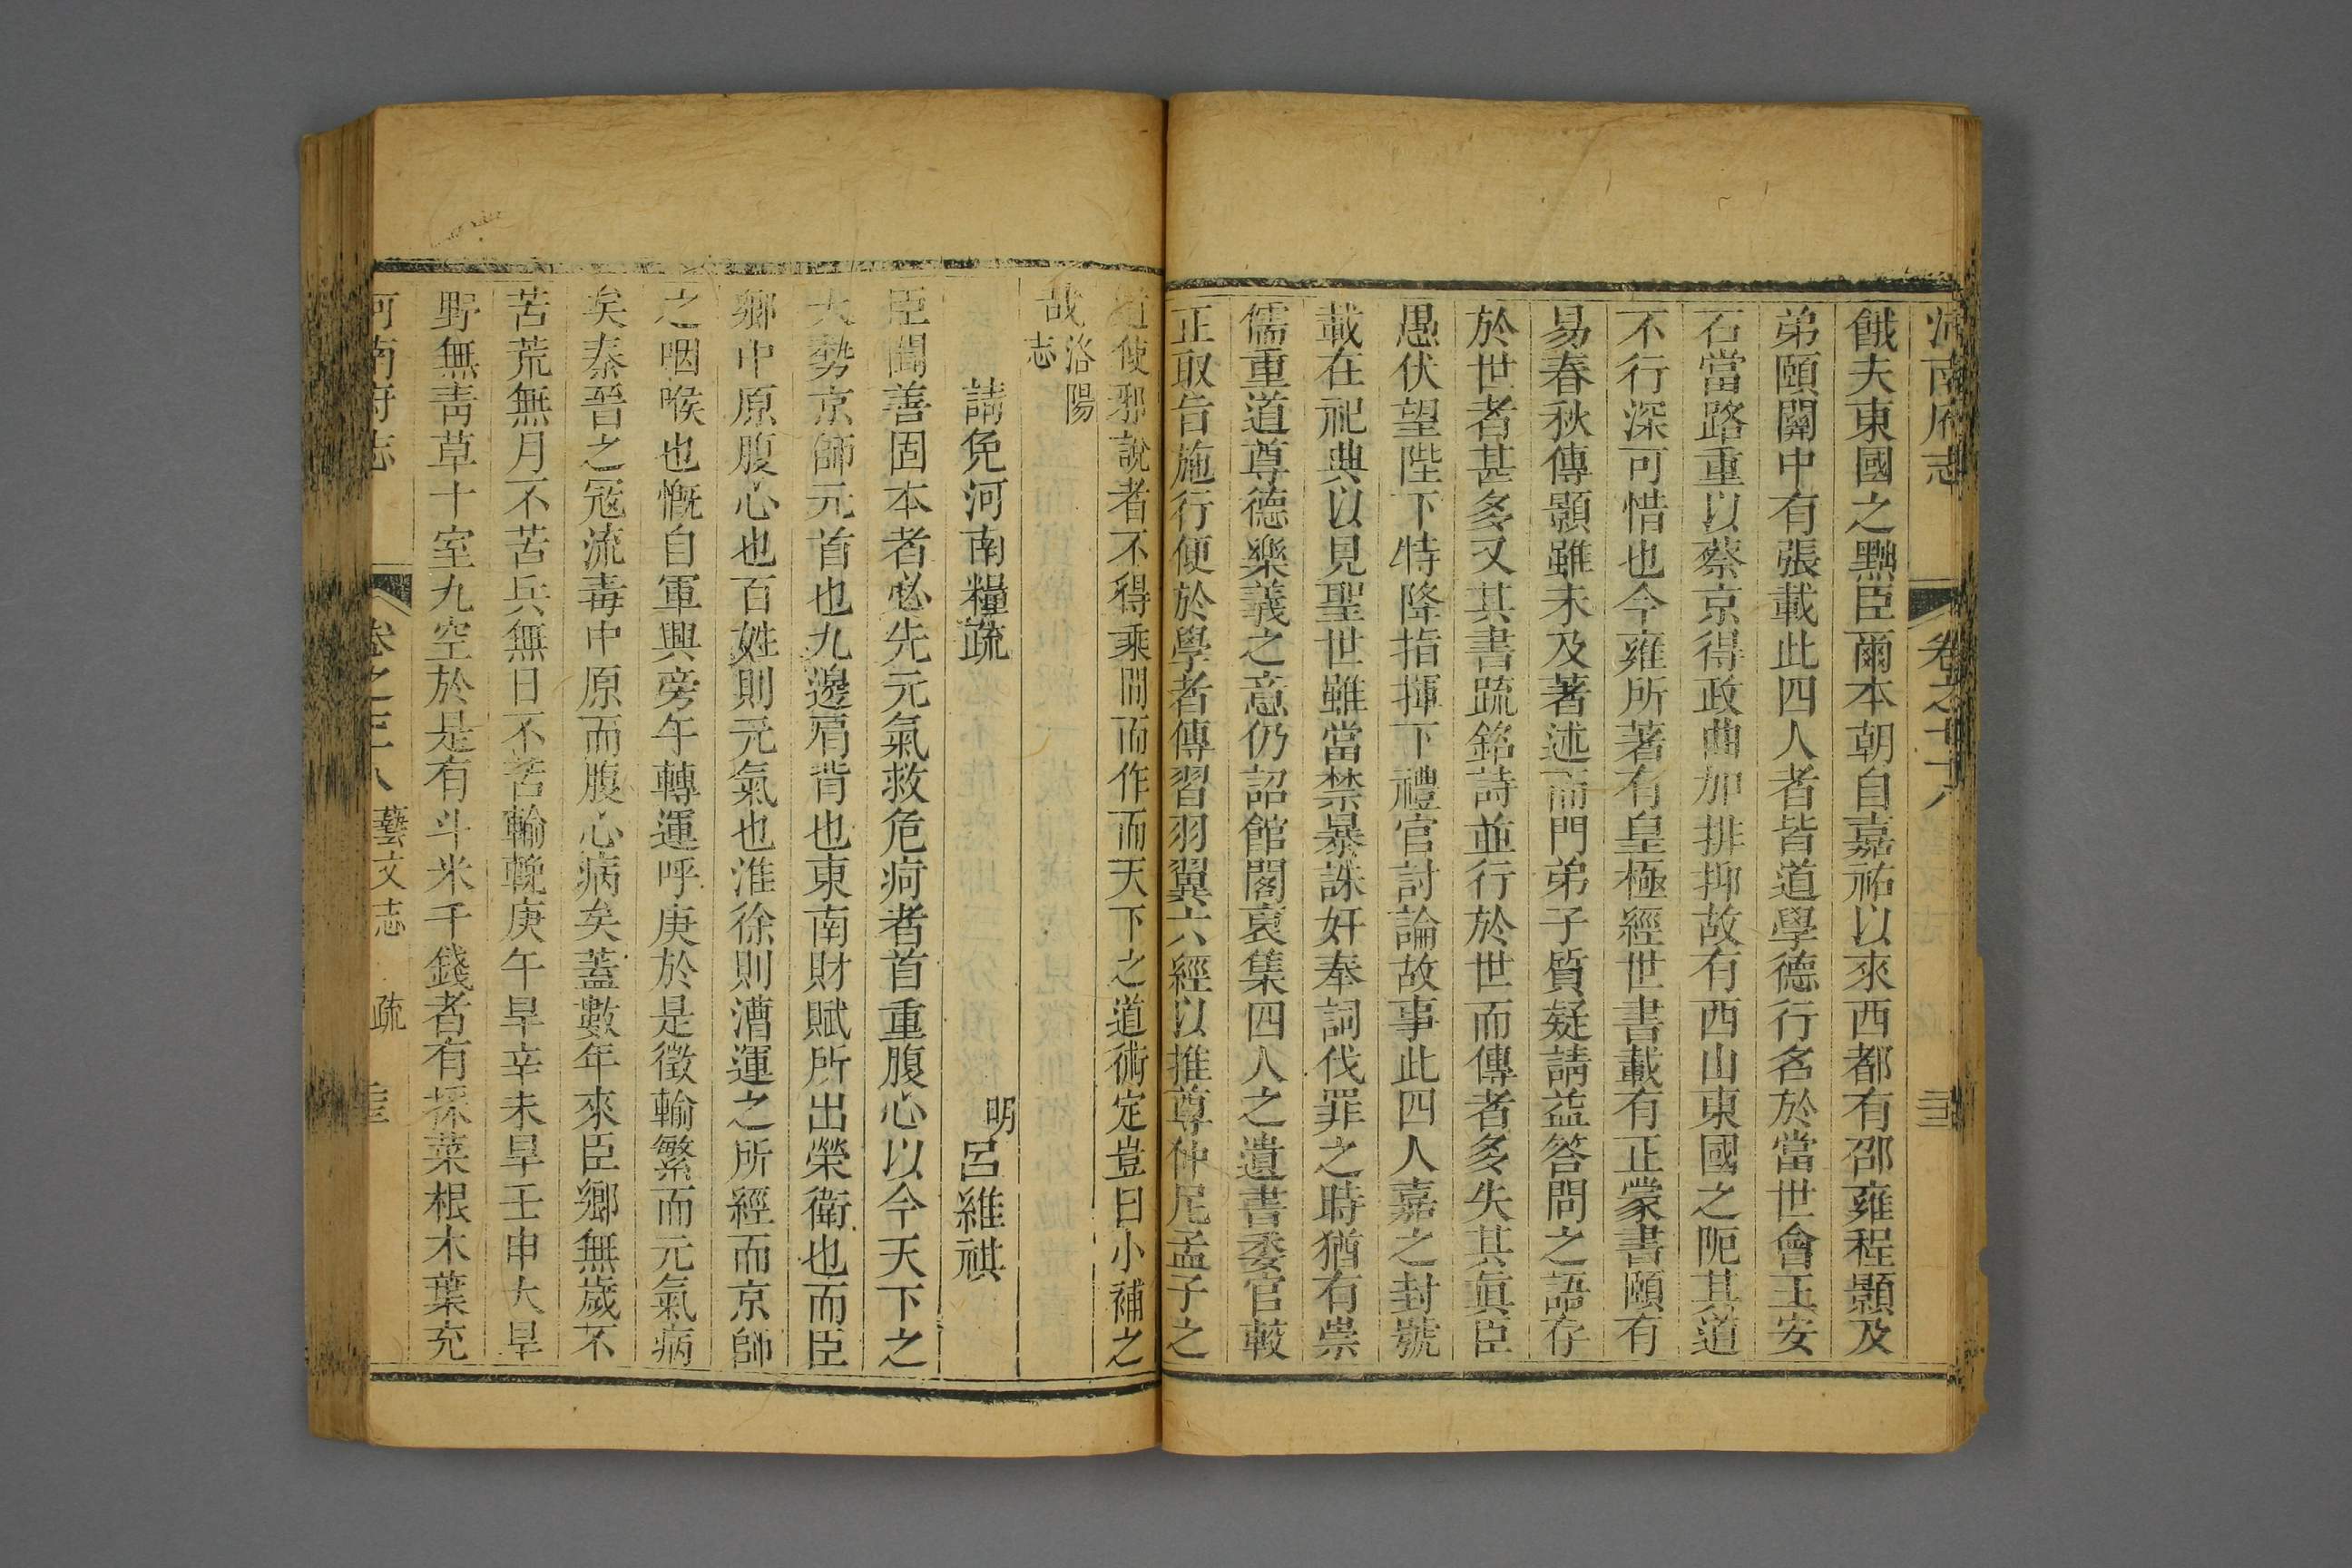 河南府志　卷之　十八
餓夫東國之黜臣爾本朝自嘉祐以來西都有邵雍程顥及
弟頤關中有張載此四人者皆道學德行名於當世會王安
石當路重以蔡京得政曲加排抑故有西山東國之阨其道
不行深可惜也今雍所著有皇極經世書載有正蒙書頤有
易春秋傳顥雖未及著述而門弟子質疑請益答問之語存
於世者甚多又其書疏銘詩並行於世而傳者多失其眞臣
愚伏望陛下特降指揮下禮官討論故事此四人嘉之封號
載在祀典以見聖世雖當禁暴誅奸奉詞伐罪之時猶有崇
儒重道尊德樂義之意仍詔館閣裒集四人之遺書委官校
正取旨施行便於學者傳習羽翼六經以推尊仲尼孟子之
道使邪說者不得乘間而作而天下之道術定豈曰小補之
哉洛陽志
請免河南糧疏　明呂維祺
臣聞善固本者必先元氣救危疴者首重腹心以今天下之
大勢京師元首也九邊肩背也東南財賦所出榮衛也而臣
鄉中原腹心也百姓則元氣也淮徐則漕運之所經而京師
之咽喉也慨自軍興旁午轉運呼庚於是徵輸繁而元氣病
矣秦晉之冦流毒中原而腹心病矣蓋數年來臣鄉無歲不
苦荒無月不苦兵無日不苦輸輓庚午旱辛未旱壬申大旱
野無靑草十室九空於是有斗米千錢者有採菜根木葉充
河南府志　卷之　十八　藝文志　疏